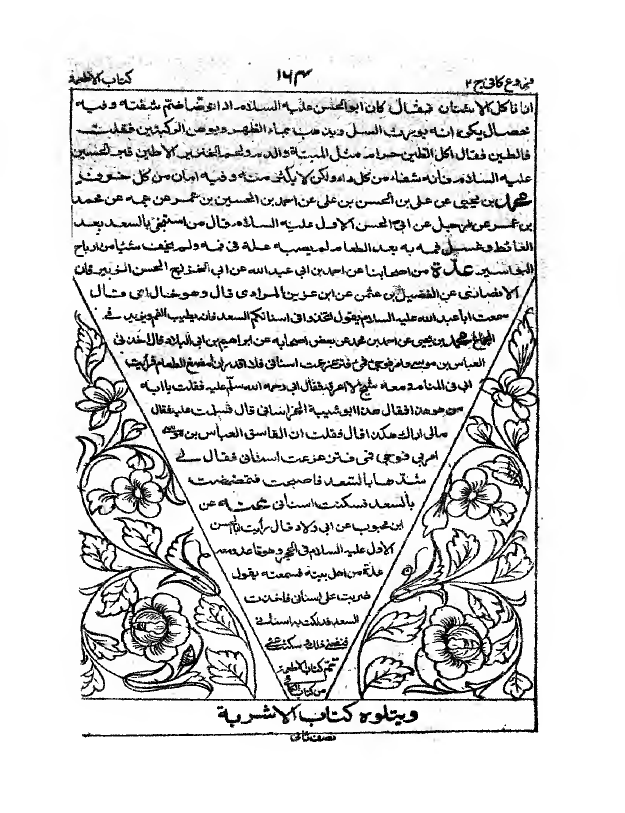 فروع كافى ج ٢ ١٦٣ كتاب الاطعمة
انا ناكل الاشنان فقال كان ابوالحسن عليه السلام اذا توضا ضم شفتيه وفيه
خصال يكره انه يورث السل ويذهب بماء الظهر ويوهن الركبتين فقلت
فالطين فقال اكل الطين حرام مثل الميتة والدم ولحم الخنزير الا طين قبر الحسين
عليه السلام فانه شفاء من كل داء ولكن لا يكثر منه وفيه امان من كل خوف
محمد بن يحيى عن على بن الحسن بن على عن احمد بن الحسين بن عمر عن عمه عن محمد
بن عمر عن رجل عن ابى الحسن الاول عليه السلام قال من استنجى بالسعد بعد
الغائط وغسل فمه به بعد الطعام لم يصبه علة فى فمه ولم يخف شيئا من ارياح
البواسير عدة من اصحابنا عن احمد بن ابى عبد الله عن ابى الخزرج الحسن الزبرقان
الانصارى عن الفضيل بن عثمن عن ابن عزيز المرادى قال وهو خال امى قال
سمعت اباعبد الله عليه السلام يقول اتخذوا فى اسنانكم السعد فانه يطيب الفم ويزيد فى
الجماع محمد بن يحيى عن احمد بن محمد عن بعض اصحابه عن ابراهيم بن ابى البلاد قال اخذنى
العباس بن موسى فامر فوجئ فمى فتزعزعت اسنانى فلا اقدر ان امضغ الطعام فرأيت
ابى فى المنام ومعه شيخ لا اعرفه فقال ابى رحمه الله سلم عليه فقلت يا ابه
من هو هذا فقال هذا ابو شيبة الخراسانى قال فسلمت عليه فقال
مالى اراك هكذا قال فقلت ان الفاسق العباس بن موسى
امر بى فوجئ فمى فتزعزعت اسنانى فقال لى
شدها بالسعد فاصبحت فتمضمضت
بالسعد فسكنت اسنانى عدة عن
ابن محبوب عن ابى ولاد قال رأيت ابا الحسن
الاول عليه السلام فى الحجر وهو قاعد ومعه
عدة من اهل بيته فسمعته يقول
ضربت على اسنانى فاخذت
السعد فدلكت به اسنانى
فنفعنى ذلك وسكنت عنى
تم كتاب الاطعمة
من كتاب
ويتلوه كتاب الاشربة
نصف ثانى